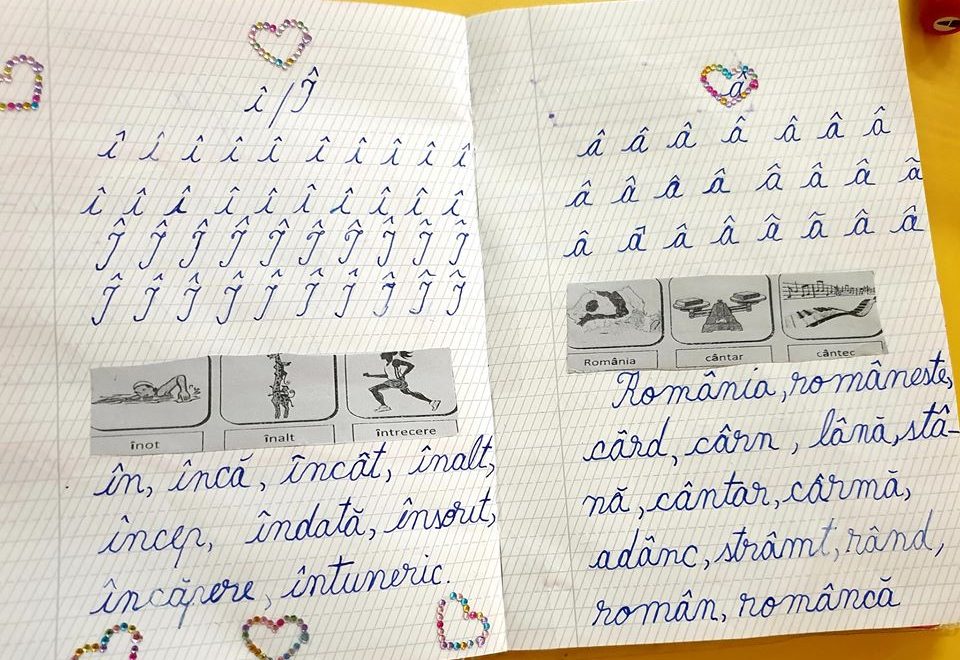 î/Î
î î î î î î î î î î
î î î î î î î î î î
Î Î Î Î Î Î Î Î Î Î
Î Î Î Î Î Î Î Î Î Î
înot înalt întrecere
în, încă, încât, înalt,
încep, îndată, însorit,
încăpere, întuneric.
â
â â â â â â â
â â â â â â â â
â â â â â â â â
România cântar cântec
România, româneste,
cârd, cârn, lână, stâ-
nă, cântar, cârmă,
adânc, strâmt, rând,
român, româncă